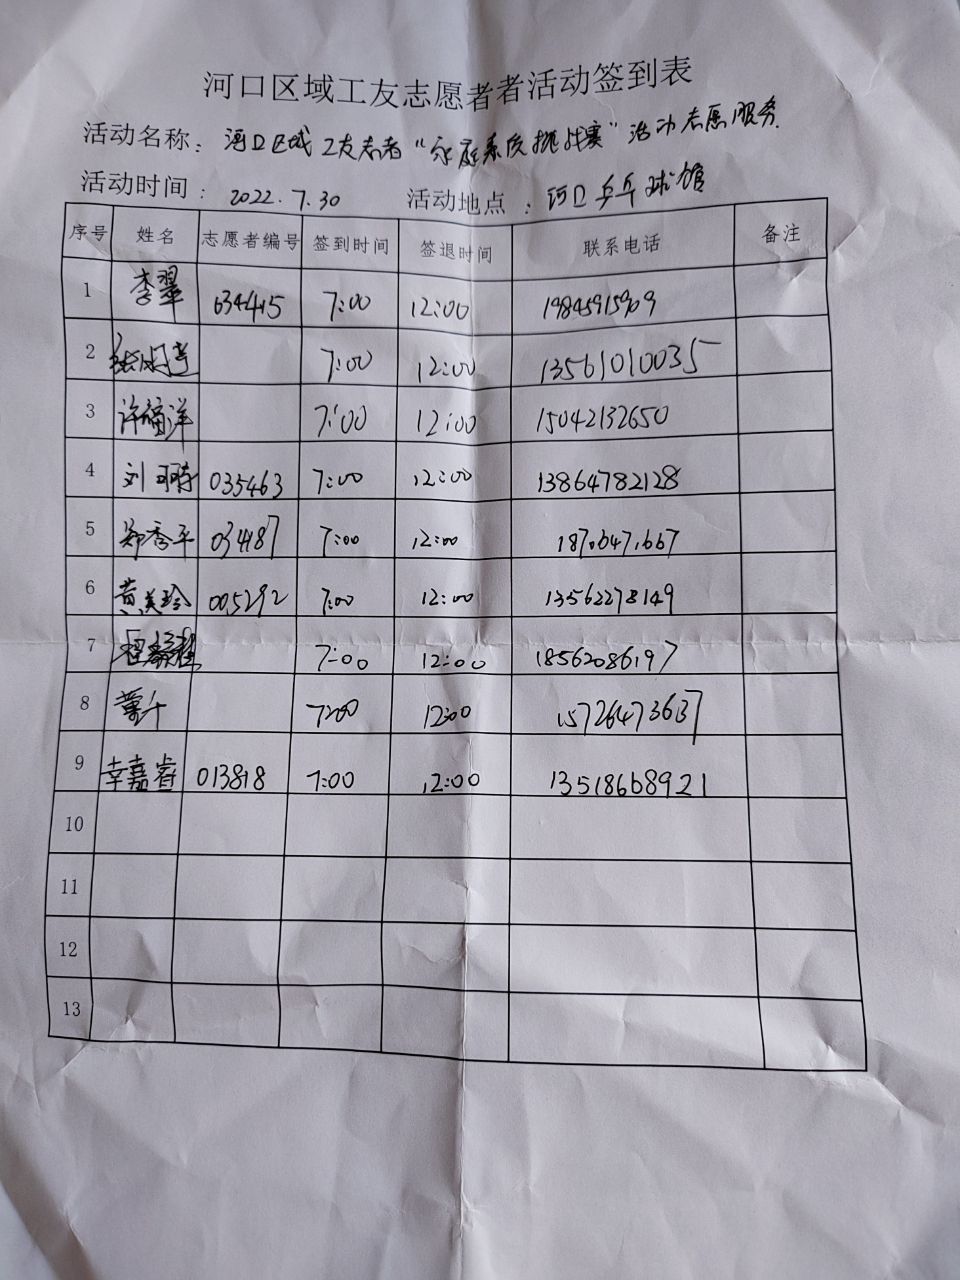 河口区域工友志愿者者活动签到表
活动名称：河口区域工友志者“家庭系统挑战赛”活动志愿服务
活动时间：2022.7.30 活动地点：河口乒乓球馆
序号 姓名 志愿者编号 签到时间 签退时间 联系电话 备注
1 李翠 034415 7:00 12:00 19845915909
2 7:00 12:00 13561010035
3 许福洋 7:00 12:00 15042132650
4 刘 035463 7:00 12:00 13864782128
5 郑秀平 034187 7:00 12:00
6 黄美玲 005292 7:00 12:00 13562278149
7 7:00 12:00 18562086197
8 7:00 12:00 15726473637
9 李嘉睿 013818 7:00 12:00 13518668921
10
11
12
13